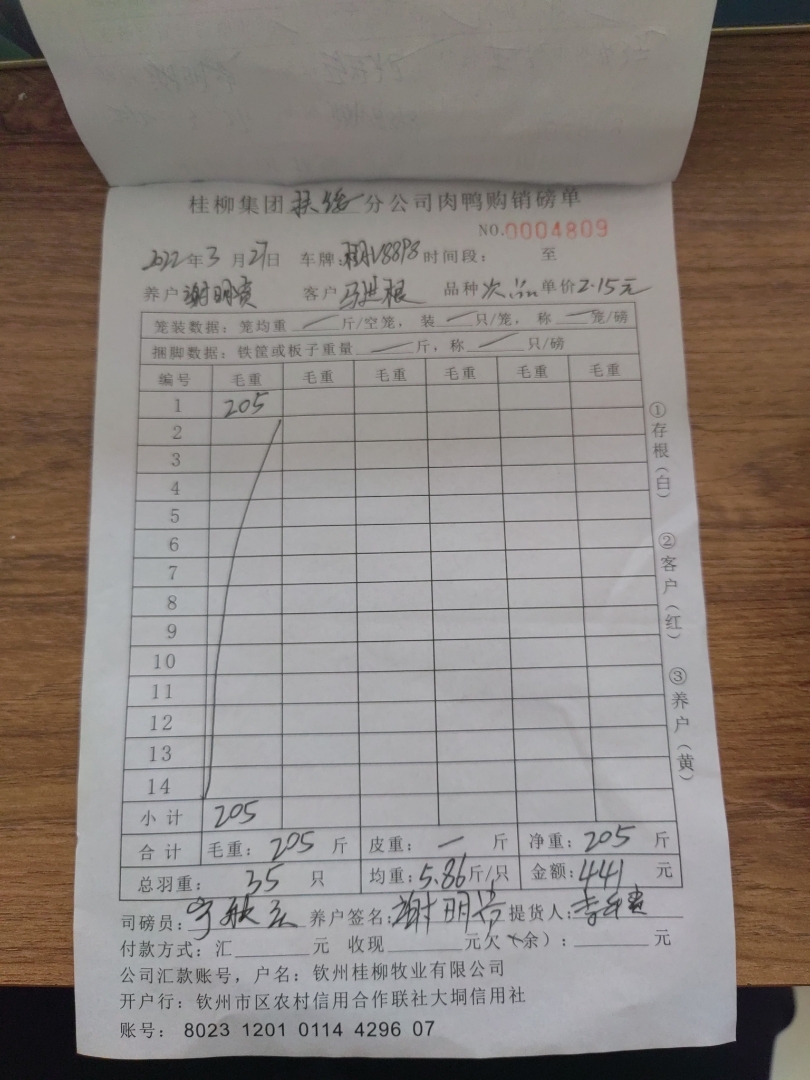 桂柳集团扶绥分公司肉鸭购销磅单
NO.0004809
2022年3月27日 车牌:湘V8898 时间段: 至
养户 谢明贵 客户 马世根 品种 次品 单价2.15元
笼装数据: 笼均重 — 斤/空笼, 装 — 只/笼, 称 — 笼/磅
捆脚数据: 铁筐或板子重量 — 斤, 称 — 只/磅
编号 毛重 毛重 毛重 毛重 毛重 毛重
1 205
2
3
4
5
6
7
8
9
10
11
12
13
14
小计 205
合计 毛重: 205 斤 皮重: — 斤 净重: 205 斤
总羽重: 35 只 均重: 5.86斤/只 金额: 441 元
司磅员: 养户签名: 谢明 提货人:
付款方式: 汇 元 收现 元欠(余): 元
公司汇款账号, 户名: 钦州桂柳牧业有限公司
开户行: 钦州市区农村信用合作联社大垌信用社
账号: 8023 1201 0114 4296 07
①存根(白)
②客户(红)
③养户(黄)